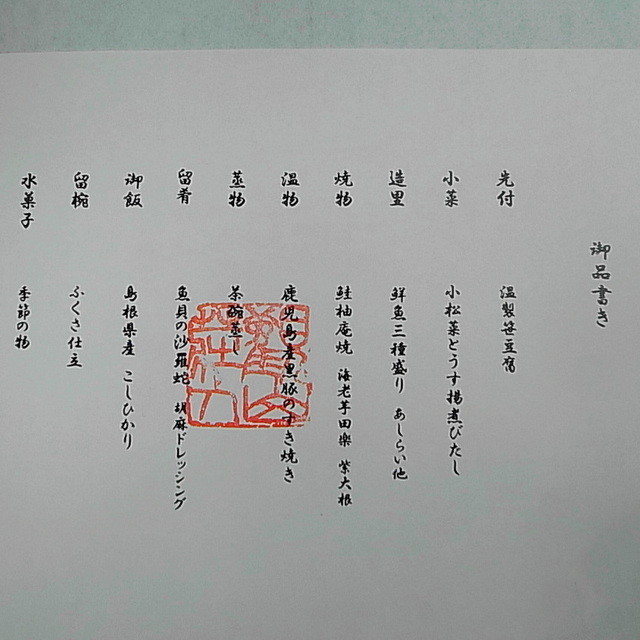 御品書き
先付 温製笹豆腐
小菜 小松菜とうす揚煮びたし
造里 鮮魚三種盛り あしらい他
焼物 鮭柚庵焼 海老芋田楽 紫大根
温物 鹿児島産黒豚のすき焼き
蒸物 茶碗蒸し
留肴 魚貝の沙羅蛇 胡麻ドレッシング
御飯 島根県産 こしひかり
留椀 ふくさ仕立
水菓子 季節の物